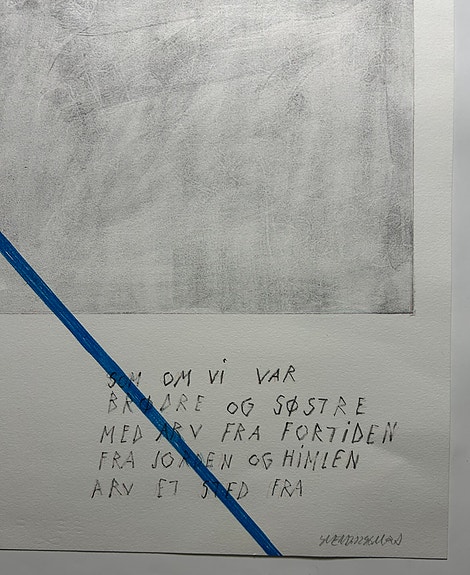 SOM OM Vi VAR
BRØDRE OG SØSTRE
MED ARV FRA FORTiDEN
FRA JORDEN OG HiMLEN
ARV ET STED FRA